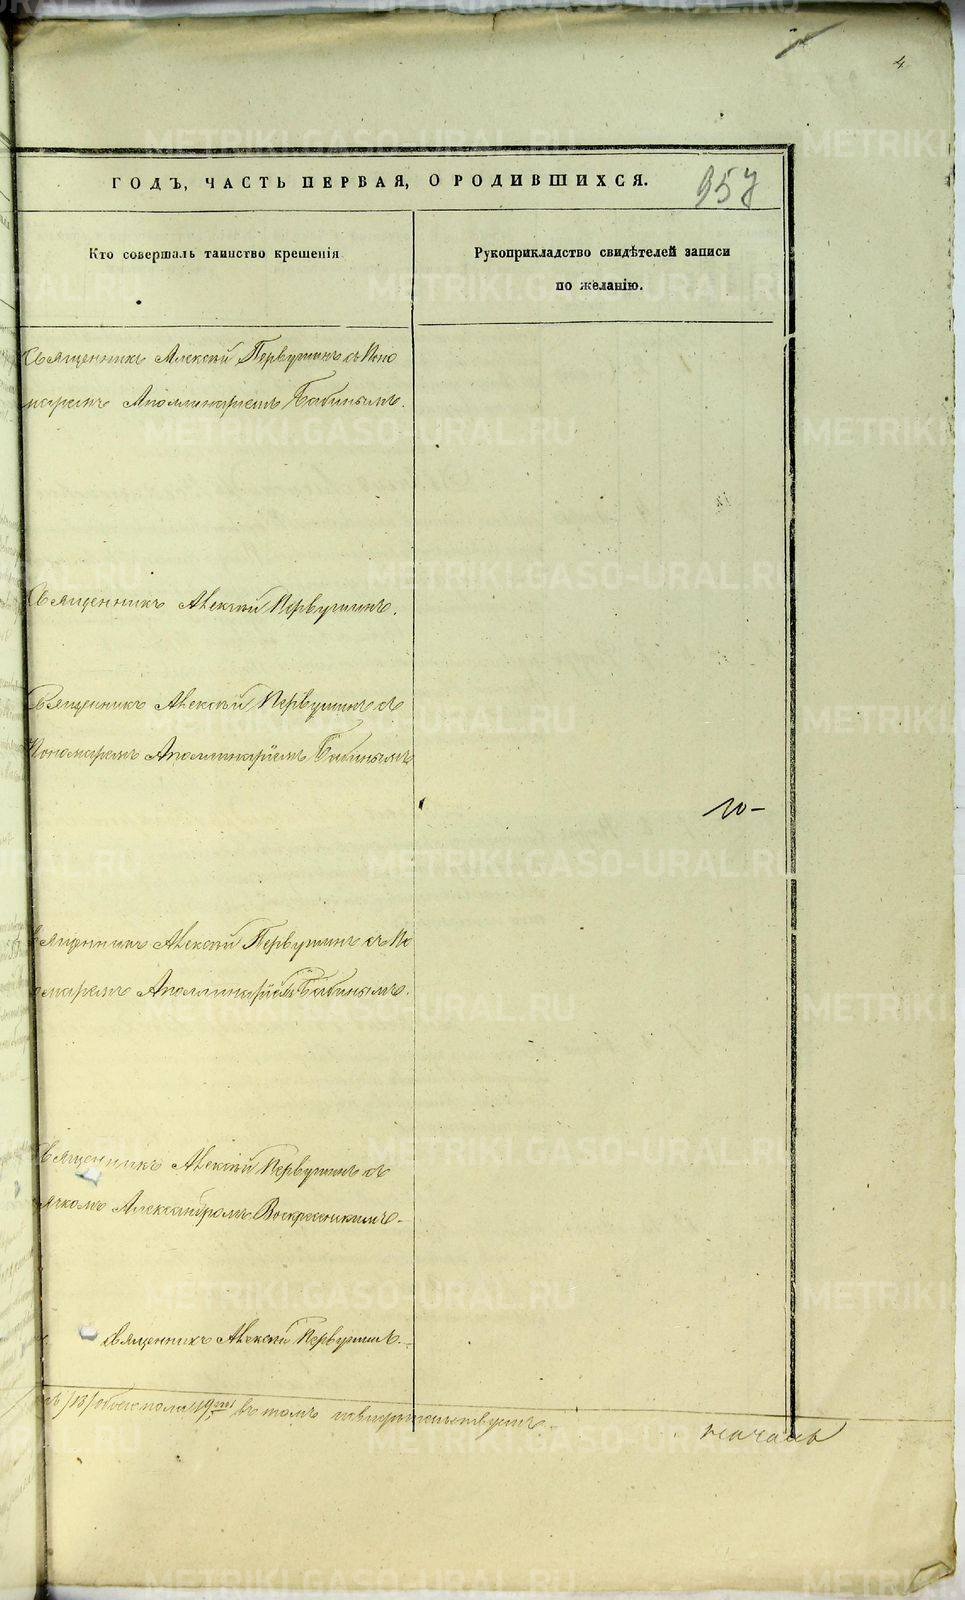 4
ГОДЪ, ЧАСТЬ ПЕРВАЯ, О РОДИВШИХСЯ.
957
Кто совершалъ таинство крещенія
Рукоприкладство свидѣтелей записи
по желанію.
Священникъ Алексѣй Первушинъ съ Поно
маремъ Аполлинаріемъ Бабинымъ.
Священникъ Алексѣй Первушинъ.
Священникъ Алексѣй Первушинъ съ
Пономаремъ Аполлинаріемъ Бабинымъ
10-
Священникъ Алексѣй Первушинъ съ По
номаремъ Аполлинаріемъ Бабинымъ.
Священникъ Алексѣй Первушинъ съ
ячкомъ Александромъ Воскресенскимъ.
Священникъ Алексѣй Первушинъ.
/13/ обоего пола 19 въ томъ
METRIKI.GASO-URAL.RU